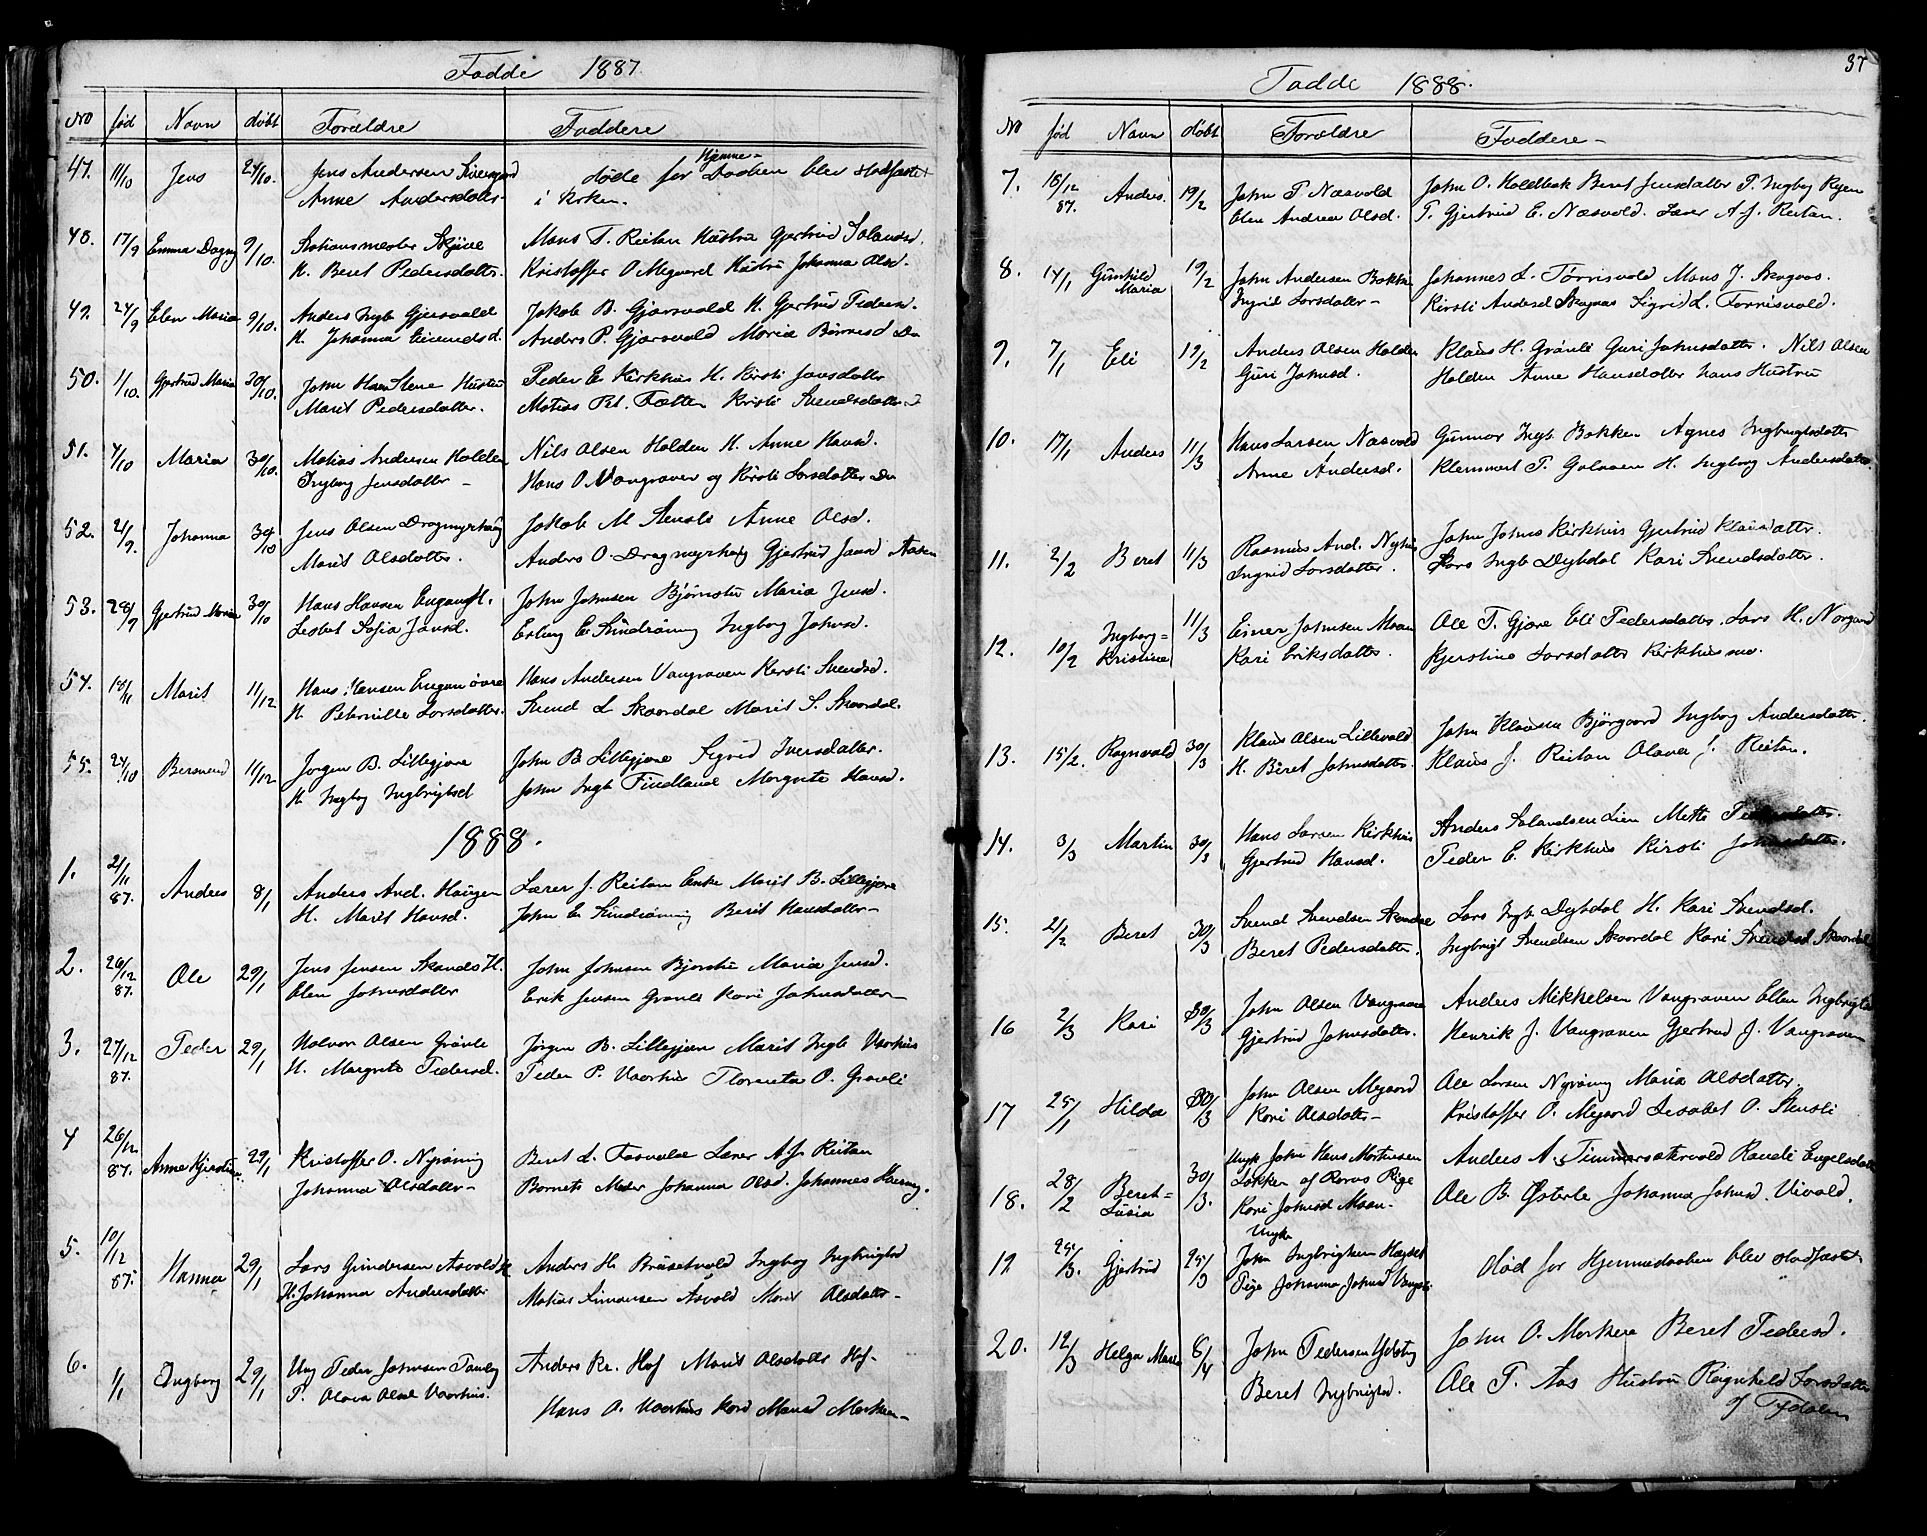 Fødde 1887.
No fød Navn døbt Forældre Faddere
47. 11/10 Jens 24/10. Jens Andersen døde for Hjemme-Daaben blev stadfæstet
Anne Andersdatter i Kirken.
48. 17/9 Emma Dagny 9/10. Stationsmester Hans T. Reitan Hustru Gjertrud
H. Beret Pedersdatter. Kristoffer O Megaard Hustru Johanna Olsd.
49. 24/9 Elen Maria 9/10. Anders Ingb Gjersvold Jakob B. Gjersvold H. Gjertrud Pedersd.
H. Johanna Eivendsd. Anders P. Gjersvold Maria
50. 1/10. Gjertrud Maria 30/10. John Hustru Peder E Kirkhus H. Kirsti Jonsdatter
Marit Pedersdatter. Matias Kristi Svendsdatter
51. 4/10 Maria 30/10. Matias Andersen Holden Nils Olsen Holden H. Anne Hansd.
Ingborg Jensdatter – Hans O Vangraven og Kirsti Larsdatter Do
52. 21/9. Johanna 30/10 Jens Olsen Dragmyrhaug Jakob M Stensli Anne Olsd.
Marit Olsdatter. Anders O. Dragmyrhaug Gjertrud Jansd Aasen
53. 28/9 Gjertrud Maria 30/10 Hans Hansen Engan H. John Johnsen Bjørnstu Maria Jensd.
Lisbet Sofia Jonsd. Erling E. Sundrønning Ingborg Johnsd.
54. 18/11 Marit 11/12 Hans Hansen Engan øvre Hans Andersen Vangraven Kersti Svendsd.
H. Larsdatter. Svend L Skaardal Marit S. Skaardal.
55. 24/10 Bersvend 11/12 Jørgen B. Lillegjære John B Lillegjære Sigrid Iversdatter.
H Ingborg Ingbrigtsd John Ingb Findland Margrete Hansd.
1888.
1. 21/11 87. Anders 8/1 Anders And. Haugen Lærer J. Reitan Enke Marit B. Lillegjære
H. Marit Hansd. John E Sundrønning Berit Hansdatter –
2. 26/12 87. Ole 29/1 Jens Jensen H. John Johnsen Bjørstu Maria Jensd.
Elen Johnsdatter Erik Jensen Grønli Kari Johnsdatter –
3. 27/12 87. Peder 29/1 Halvor Olsen Grønli Jørgen B. Lillegjære Marit Ingb Vaarhus
H. Margrete Pedersd. Peder P. Vaarhus O. Grønli
4 26/12 87. Anne Kjerstine 29/1 Kristoffer O. Nyrøning Beret L. Lærer A. J. Reitan
Johanna Olsdatter – Barnets Moder Johanna Olsd. Johannes
5. 10/12 87. Hanna 29/1 Lars Gundersen Aasvold Anders H. Bruseth­vold Ingborg Ingbrigtsd
H. Johanna Andersdatter Matias Simonsen Aasvold Marit Olsdatter –
6. 1/1 Ingborg 29/1 Ung Peder Johnsen Anders Kr. Hof Marit Olsdatter Hof –
P. Olava Olsd Vaarhus. Hans O. Vaarhus Hansd Morken –
37
Fødde 1888.
No fød Navn døbt Forældre Faddere –
7. 18/12 87. Anders. 19/2 John P Næsvold John O. Holdbak Beret Jensdatter P. Ingborg Ryen
Elen Andrea Olsd. P. Gjertrud E. Næsvold. Lærer A. J. Reitan.
8. 14/1 Gunhild Maria 19/2 John Andersen Bakken Johannes L. Tørrisvold Hans J. Skognas.
Ingrid Larsdatter – Kirsti Andersd Skognas Sigrid L. Torrisvold.
9. 7/1 Eli 19/2 Anders Olsen Holden Klaus H. Grønli Guri Johnsdatter. Nils Olsen
Guri Johnsd. Holden Anne Hansdatter hans Hustru
10. 17/1 Anders 11/3 Hans Larsen Næsvold Gunnar Ingb. Bakken Agnes Ingbrigtsdatter
Anne Andersd. Klemmet P. Galaaen H. Ingborg Andersdatter.
11. 2/2 Beret 11/3 Rasmus And. Nyhus John Johns Kirkhus Gjertrud Klausdatter.
Ingrid Larsdatter. Lars Ingb Dybdal Kari Svendsdatter.
12. 10/2 Ingborg = Kristine 11/3 Einar Johnsen Moan Ole P. Gjære Eli Pedersdatter. Lars H. Norgaard
Kari Eriksdatter. Kjerstine Larsdatter Kirkhusmo.
13. 15/2. Ragnvald 30/3 Klaus Olsen Lillevold John Klausen Bjørgaard Ingborg Andersdatter.
H. Beret Johnsdatter. Klaus J. Reitan Olava J. Reitan.
14. 3/3 Martin 30/3 Hans Larsen Kirkhus Anders Salandsen Lien Mette Pedersdatter.
Gjertrud Hansd. Peder E. Kirkhus Kirsti Johnsdatter.
15. 21/2 Beret 30/3 Svend Svendsen Skaardal Lars Ingb Dybdal H. Kari Svendsd.
Beret Pedersdatter. Ingbrigt Svendsen Skaardal Kari Svendsd Skaardal
16 2/3 Kari 30/3 John Olsen Vangraven Anders Mikkelsen Vangraven Ellen Ingbrigtsd
Gjertrud Johnsdatter. Henrik J. Vangraven Gjertrud J. Vangraven
17 25/1 Hilda 30/3 John Olsen Megaard Ole Larsen Nyrøning Maria Olsdatter.
Kari Olsdatter – Kristoffer O. Megaard Lisabet O. Stensli
18. 28/2 Beret = Lusia 30/3. Ungk John Hans Mortensen Anders A. Timmersætervold Randi Engelsdatter
Løkken af Røros Pige
Kari Johnsd Moan – Ole B. Østerle Johanna Johnsd. Vivold.
19 25/3. Gjertrud 25/3 Ungk John Ingbrigtsen død før Hjemmedaaben blev stadfæstet
Pige Johanna Johnsd
20. 12/3 Helga Marie 8/4 John Pedersen John O. Morken Beret Pedersd.
Beret Ingbrigtsd. Ole P. Aas Hustru Ragnhild Larsdatter
af Tydalen